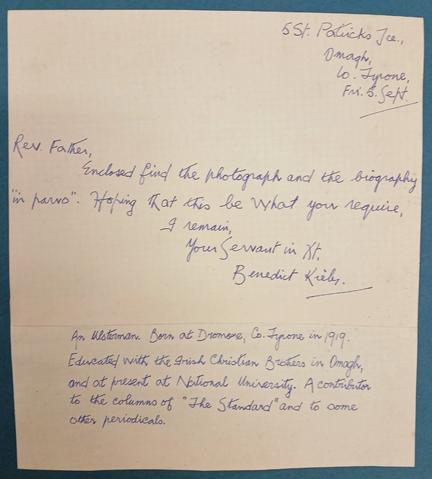 5 St. Patricks Tce.,
Omagh,
Co. Tyrone,
Fri. 5. Sept.
Rev. Father,
Enclosed find the photograph and the biography
"in parvo". Hoping that this be what you require,
I remain,
Your Servant in Xt.
Benedict Kiely.
An Ulsterman. Born at Dromore, Co. Tyrone in 1919.
Educated with the Irish Christian Brothers in Omagh,
and at present at National University. A contributor
to the columns of "The Standard" and to some
other periodicals.